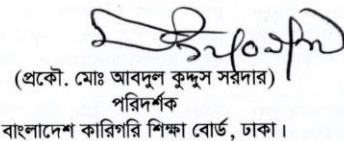 (প্রকৌ. মোঃ আবদুল কুদ্দুস সরদার)
পরিদর্শক
বাংলাদেশ কারিগরি শিক্ষা বোর্ড, ঢাকা।